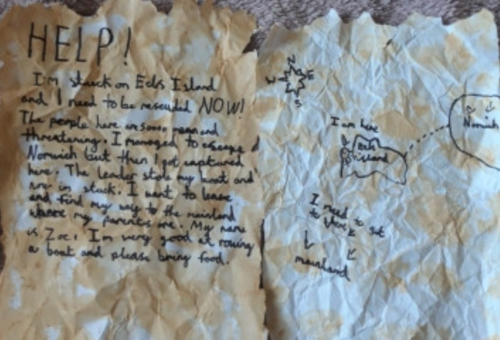 HELP!
I'm stuck on Eels Island
and I need to be rescued NOW!
The people here are mean and
threatening. I managed to escape
Norwich but then I got captured
here. The leader stole my boat and
now im stuck. I want to leave
and find my way to the mainland
where my parents are. My name
is Zoe. I'm very good at rowing
a boat and please bring food.
N
E
S
W
I am here
Eels
island
Norwich
I need to get
to there
mainland